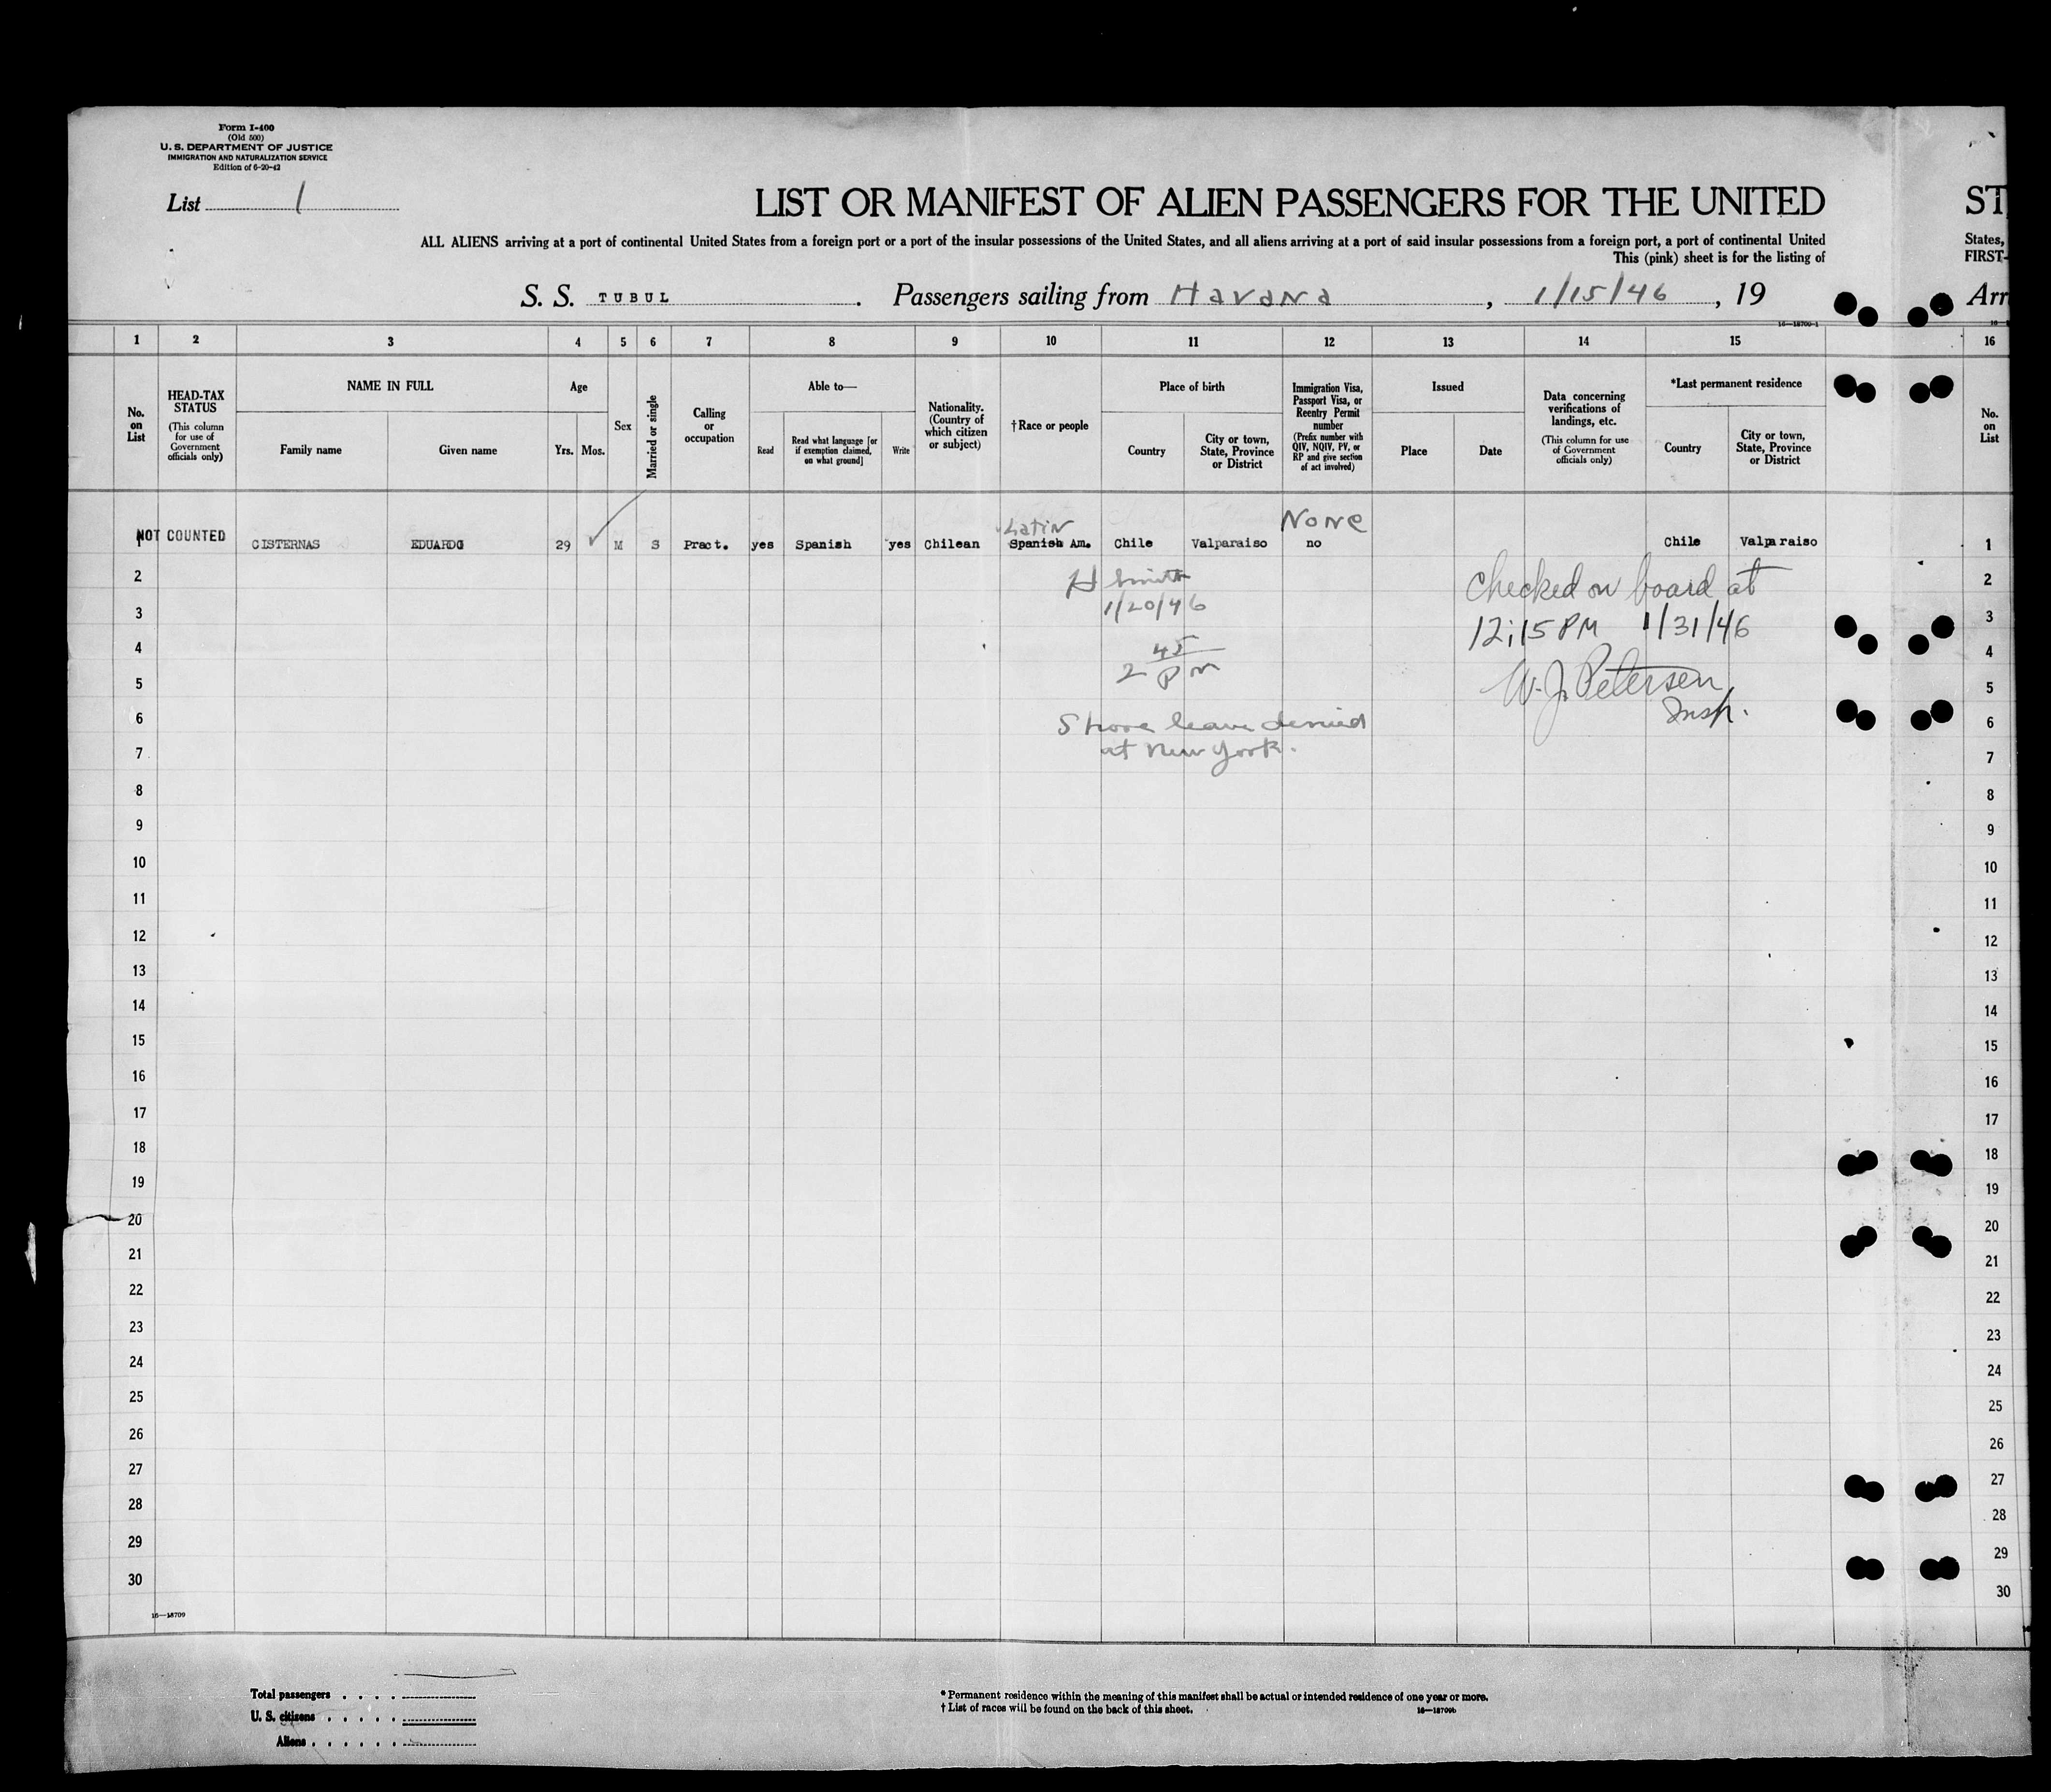 Form I-400
(Old 500)
U. S. DEPARTMENT OF JUSTICE
IMMIGRATION AND NATURALIZATION SERVICE
Edition of 6-20-42
List 1
LIST OR MANIFEST OF ALIEN PASSENGERS FOR THE UNITED
ST
ALL ALIENS arriving at a port of continental United States from a foreign port or a port of the insular possessions of the United States, and all aliens arriving at a port of said insular possessions from a foreign port, a port of continental United
States,
This (pink) sheet is for the listing of
FIRST-
S. S. TUBUL. Passengers sailing from Havana, 1/15/46, 19
Arr
1 2 3 4 5 6 7 8 9 10 11 12 13 14 15 16
No. on List
HEAD-TAX STATUS
(This column for use of Government officials only)
NAME IN FULL
Family name
Given name
Age
Yrs.
Mos.
Sex
Married or single
Calling or occupation
Able to—
Read
Read what language [or if exemption claimed, on what ground]
Write
Nationality. (Country of which citizen or subject)
†Race or people
Place of birth
Country
City or town, State, Province or District
Immigration Visa, Passport Visa, or Reentry Permit number
(Prefix number with QIV, NQIV, PV, or RP and give section of act involved)
Issued
Place
Date
Data concerning verifications of landings, etc.
(This column for use of Government officials only)
*Last permanent residence
Country
City or town, State, Province or District
No. on List
Latin
None
1 NOT COUNTED CISTERNAS EDUARDO 29 M S Pract. yes Spanish yes Chilean Spanish Am. Chile Valparaiso no Chile Valparaiso 1
H Smith
1/20/46
2 45 PM
Shore leave denied
at New York.
Checked on board at
12:15 PM 1/31/46
W. J. Petersen
Insp.
2 2
3 3
4 4
5 5
6 6
7 7
8 8
9 9
10 10
11 11
12 12
13 13
14 14
15 15
16 16
17 17
18 18
19 19
20 20
21 21
22 22
23 23
24 24
25 25
26 26
27 27
28 28
29 29
30 30
16—18709
Total passengers . . . .
U. S. citizens . . . . .
Aliens . . . . . .
* Permanent residence within the meaning of this manifest shall be actual or intended residence of one year or more.
† List of races will be found on the back of this sheet.